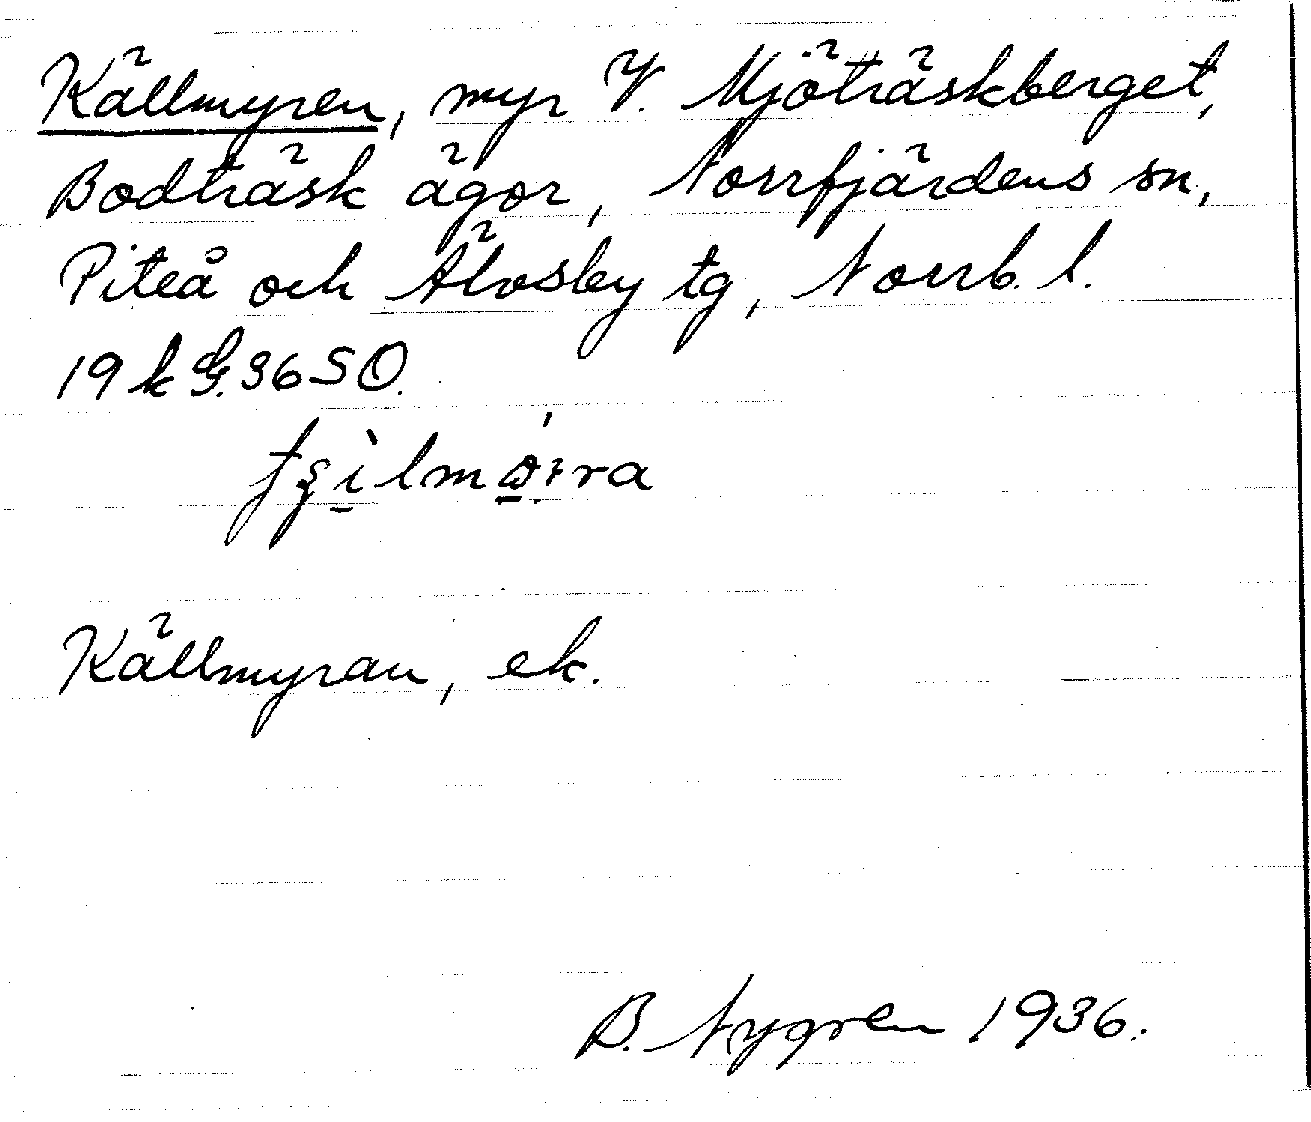 Källmyren, myr V. Mjöträskberget,
Bodträsk ägor, Norrfjärdens sn,
Piteå och Älvsby tg, Norrb. l.
19 k G. 36 SO.
Källmyran, ek.
B. Nygren 1936.